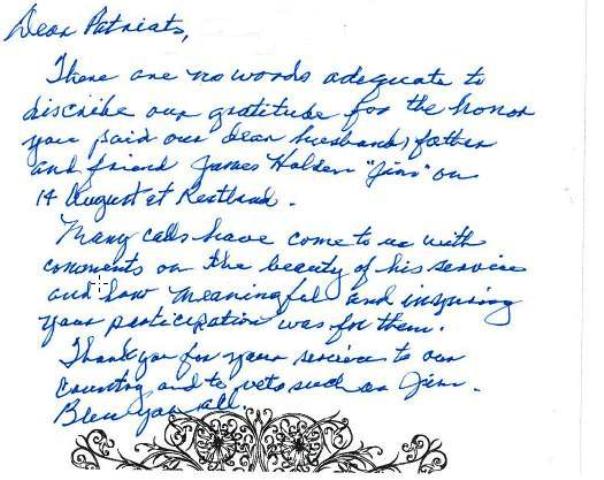 Dear Patriots,
There are no words adequate to
discribe our gratitude for the honor
you paid our dear husband, father
and friend James Holden "Jim" on
14 August at Restland.
Many calls have come to us with
comments on the beauty of his service
and how meaningful and inspiring
your participation was for them.
Thank you for your service to our
Country and to vets such as Jim.
Bless you all.